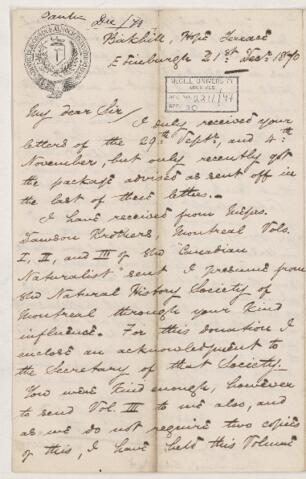 Dec /70
Birkhill, Hope Terrace
Edinburgh 21st Decr. 1870
McGILL UNIVERSITY
ARCHIVES
ACC. NO. 2211/44
REF. 30
My dear Sir
I duly received your
letters of the 29th Septr. and 4th
November, but only recently got
the package advised as sent off in
the last of these letters.
I have received from Messrs.
Dawson Brothers Montreal Vols.
I, II, and III of the "Canadian
Naturalist" sent I presume from
the Natural History Society of
Montreal through your kind
influence. For this donation I
enclose an acknowledgment to
the Secretary of that Society.
You were kind enough, however
to send Vol. III to me also, and
as we do not require two copies
of this, I have held this Volume